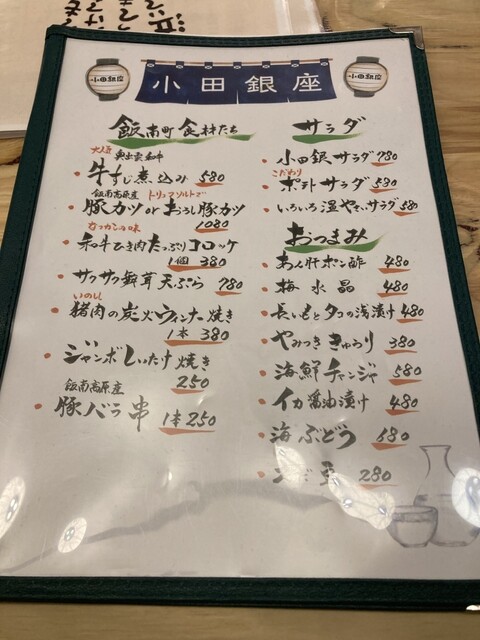 小田銀座
小田銀座
小田銀座
飯南町食材たち
大人気 奥出雲和牛
・牛すじ煮込み 580
飯南高原産 トリュフソルトで
・豚カツorおろし豚カツ
1080
なつかしの味
・和牛ひき肉たっぷりコロッケ
1個 380
・サクサク舞茸天ぷら 780
いのしし
・猪肉の炭火ウィンナー焼き
1本 380
・ジャンボしいたけ焼き
250
飯南高原産
・豚バラ串 1本250
サラダ
・小田銀サラダ 780
こだわり
・ポテトサラダ 580
・いろいろ温やさいサラダ 580
おつまみ
・あん肝ポン酢 480
・梅水晶 480
・長いもとタコの浅漬け 480
・やみつききゅうり 380
・海鮮チャンジャ 580
・イカ醤油漬け 480
・海ぶどう 580
豆 280